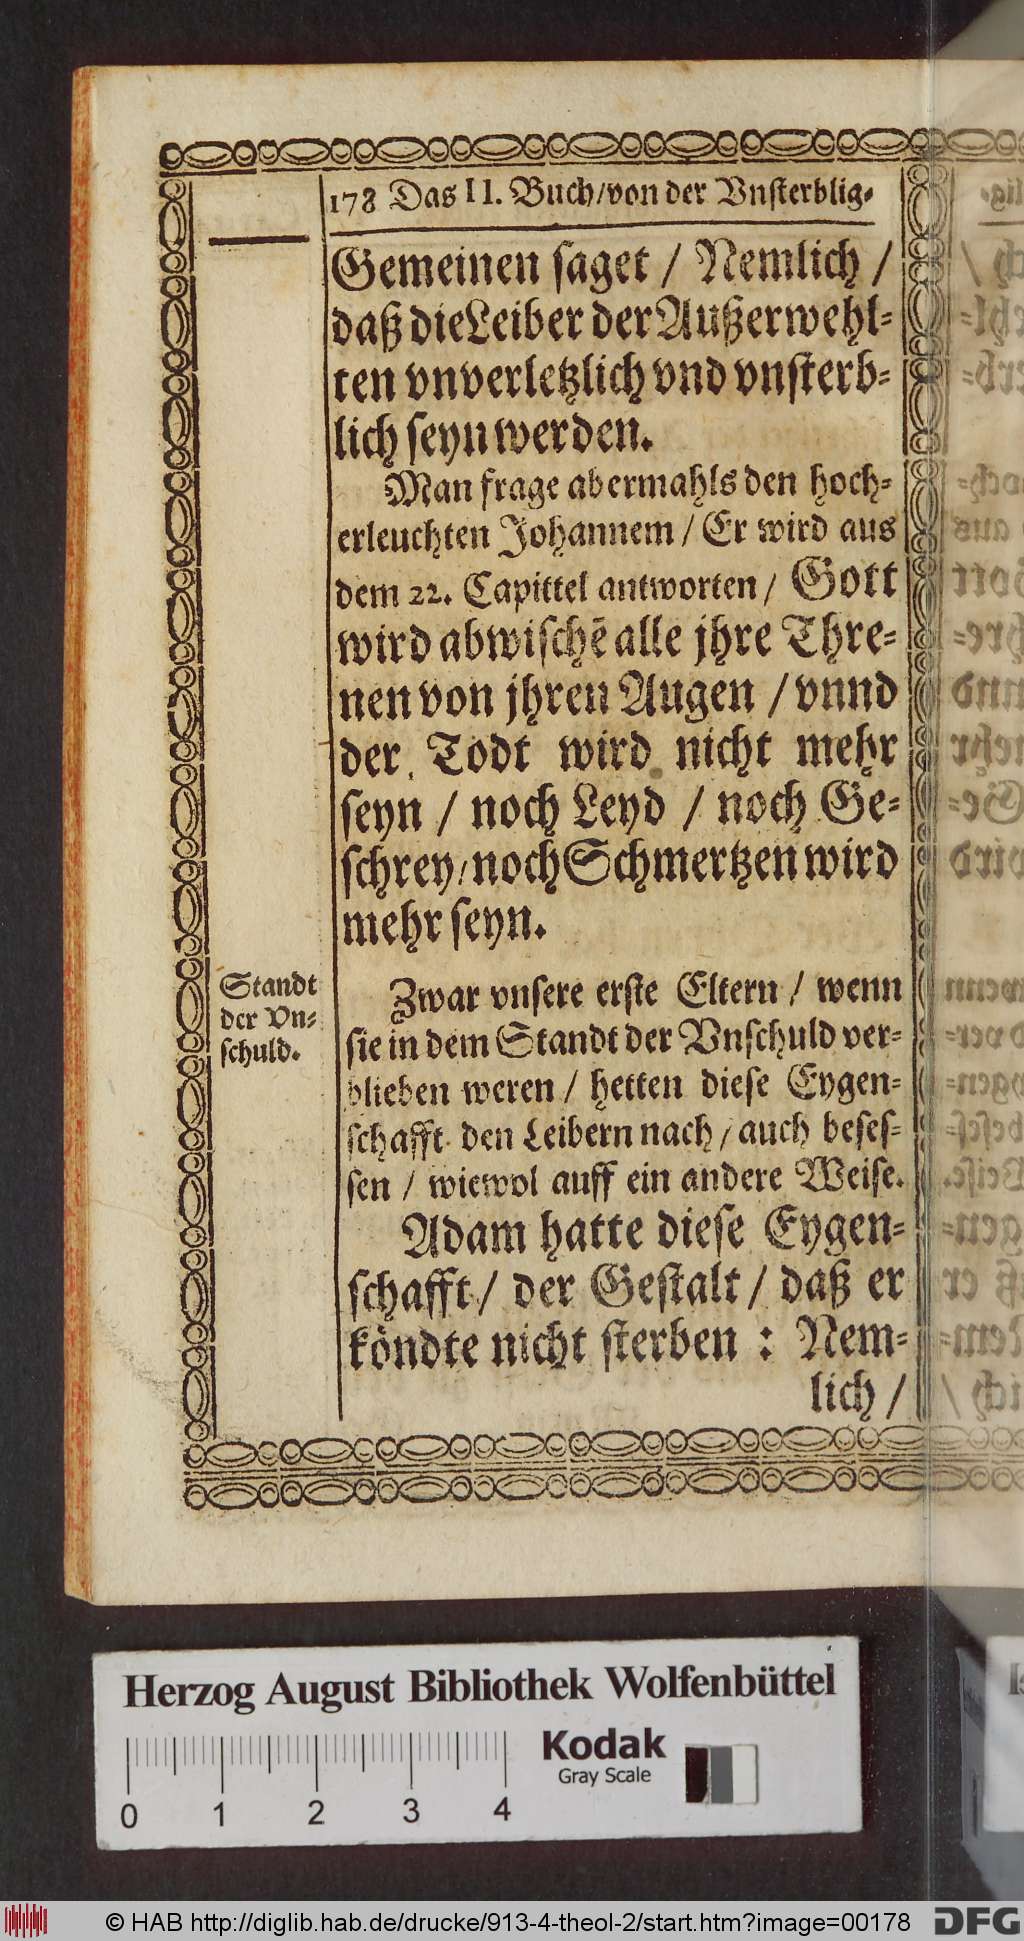 178 Das II. Buch/von der Vnsterblig-
Gemeinen saget / Nemlich /
daß die Leiber der Außerwehl-
ten vnverletzlich vnd vnsterb-
lich seyn werden.
Man frage abermahls den hoch-
erleuchten Johannem / Er wird aus
dem 22. Capittel antworten / Gott
wird abwischē alle jhre Thre-
nen von jhren Augen / vnnd
der Todt wird nicht mehr
seyn / noch Leyd / noch Ge-
schrey / noch Schmertzen wird
mehr seyn.
Standt
der Vn-
schuld.
Zwar vnsere erste Eltern / wenn
sie in dem Standt der Vnschuld ver-
blieben weren / hetten diese Eygen-
schafft den Leibern nach / auch beses-
sen / wiewol auff ein andere Weise.
Adam hatte diese Eygen-
schafft / der Gestalt / daß er
köndte nicht sterben : Nem-
lich /
Herzog August Bibliothek Wolfenbüttel
Kodak
Gray Scale
0 1 2 3 4
© HAB http://diglib.hab.de/drucke/913-4-theol-2/start.htm?image=00178
DFG